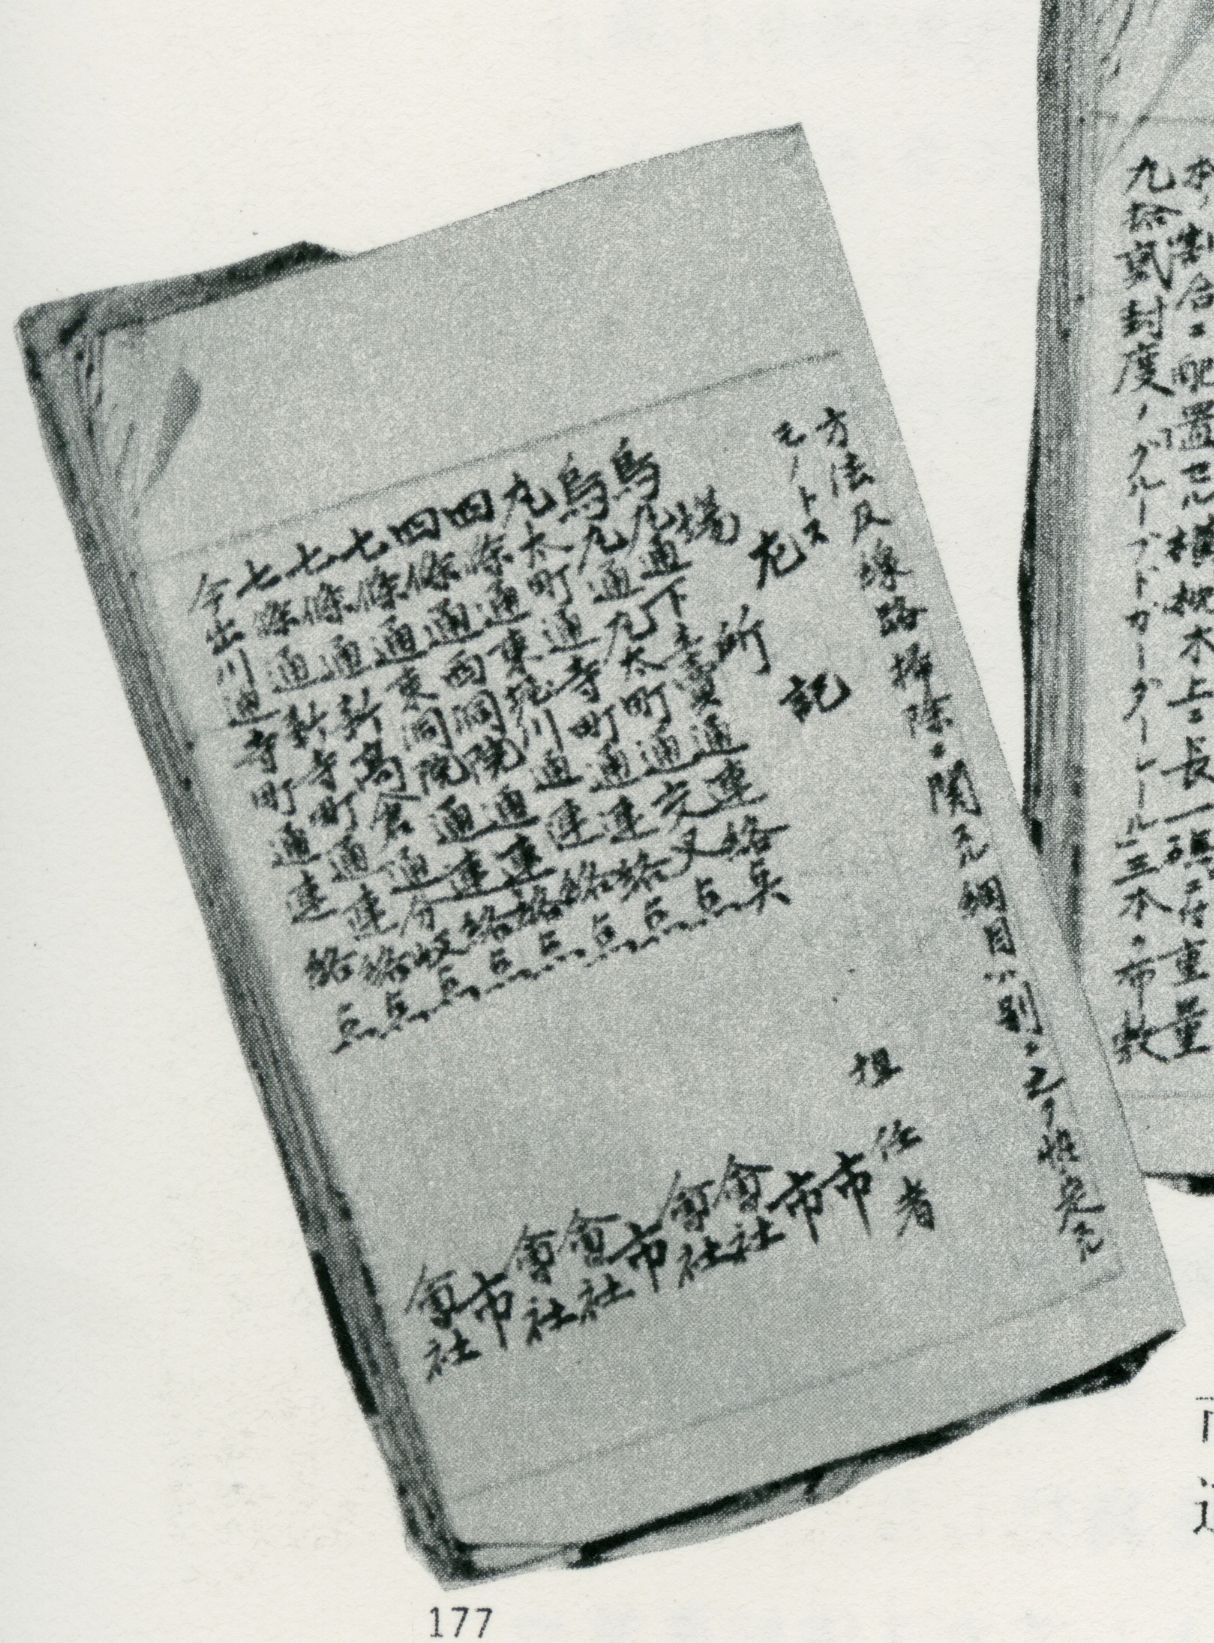 本ノ割合ニ配置シ横枕木上ニ長一碼ノ重量
九拾貳封度ノグルーブドガーダーレール三本ヲ市敷
方法及線路掃除ニ関スル細目ハ別ニ之ヲ協定スル
モノトス
左記
場所 担任者
烏丸通下立賣通連絡点 市
烏丸通丸太町通交叉点 市
丸太町通寺町通連絡点 會社
四條通東堀川通連絡点 會社
四條通西洞院通連絡点 市
七條通東洞院通連絡点 會社
七條通新高倉通分岐点 會社
七條通新寺町通連絡点 市
今出川通寺町通連絡点 會社
177